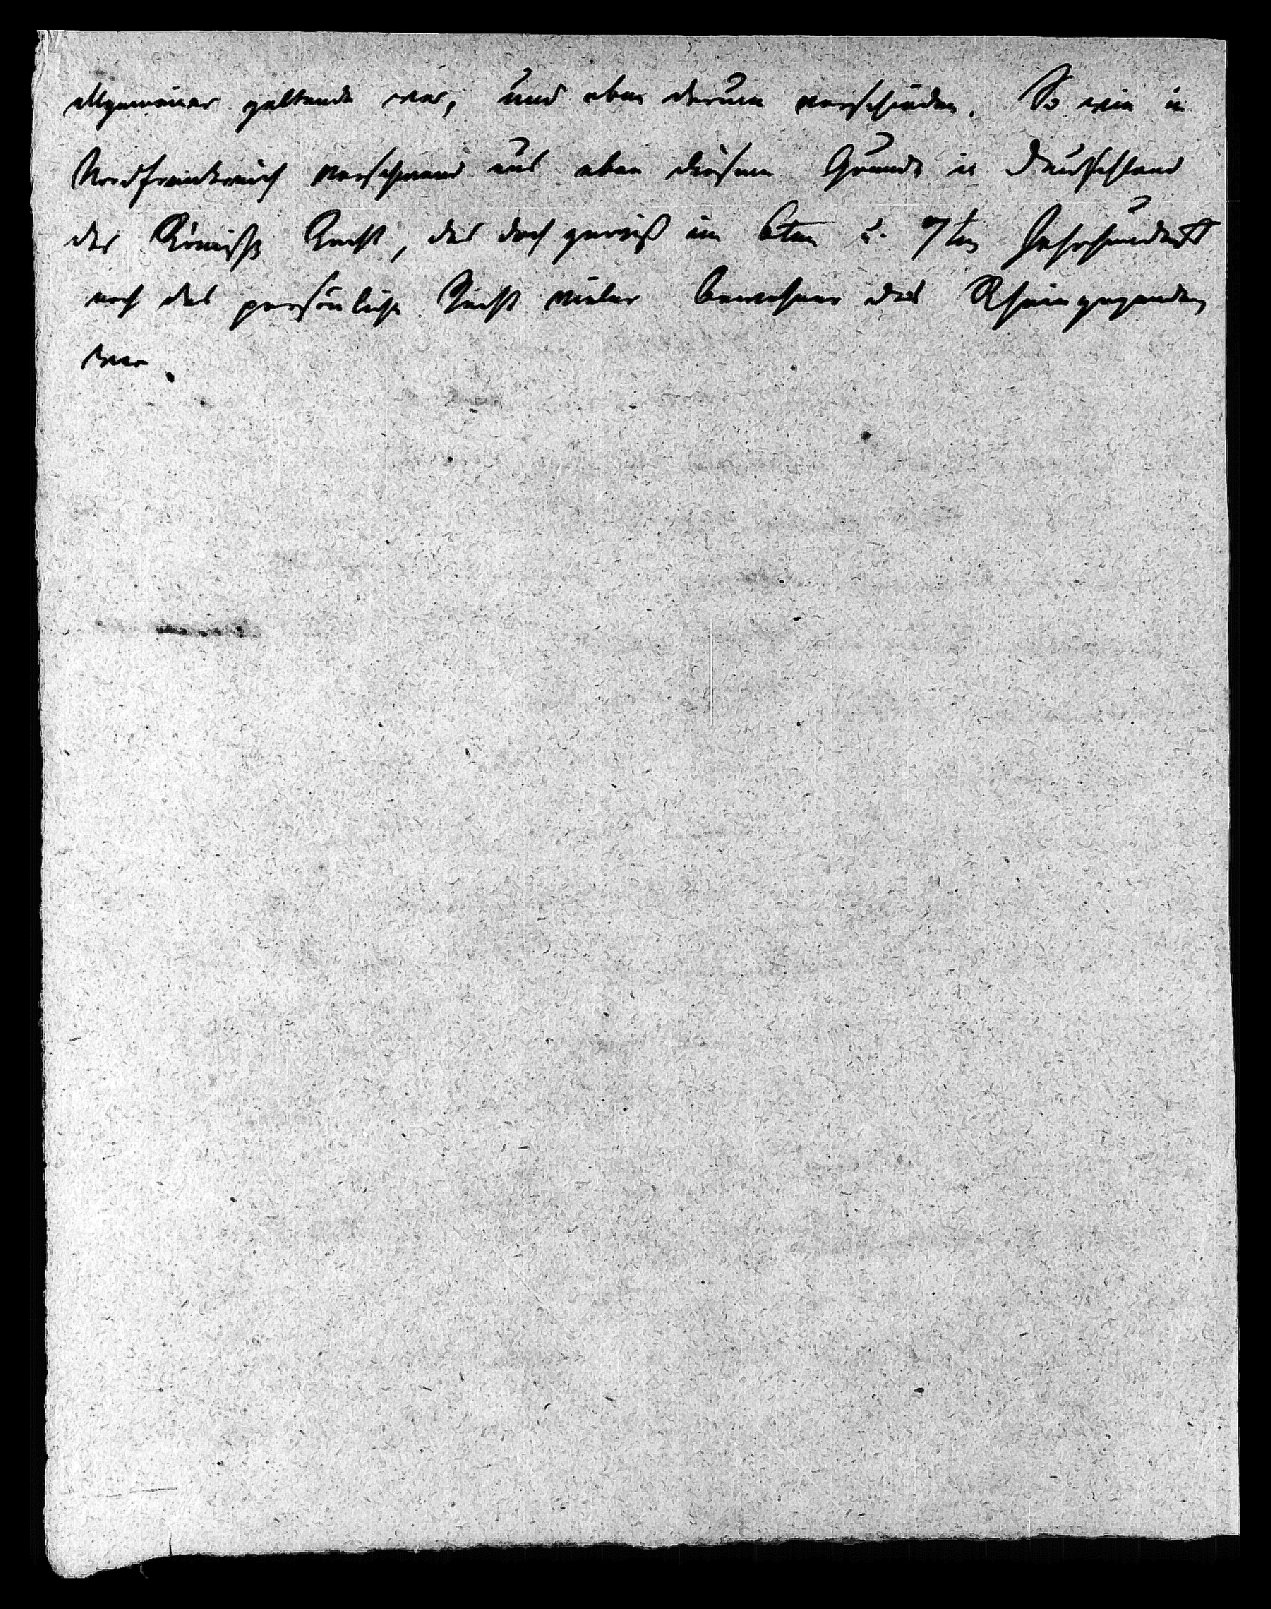 allgemeiner geltende war, und eben darum verschieden. So wie in
Nordfrankreich verschwand aus eben diesem Grunde in Deutschland
das Römische Recht, das doch gewiß im 6ten u. 7ten Jahrhundert
noch das persönliche Recht vieler Bewohner der Rheingegenden
war.